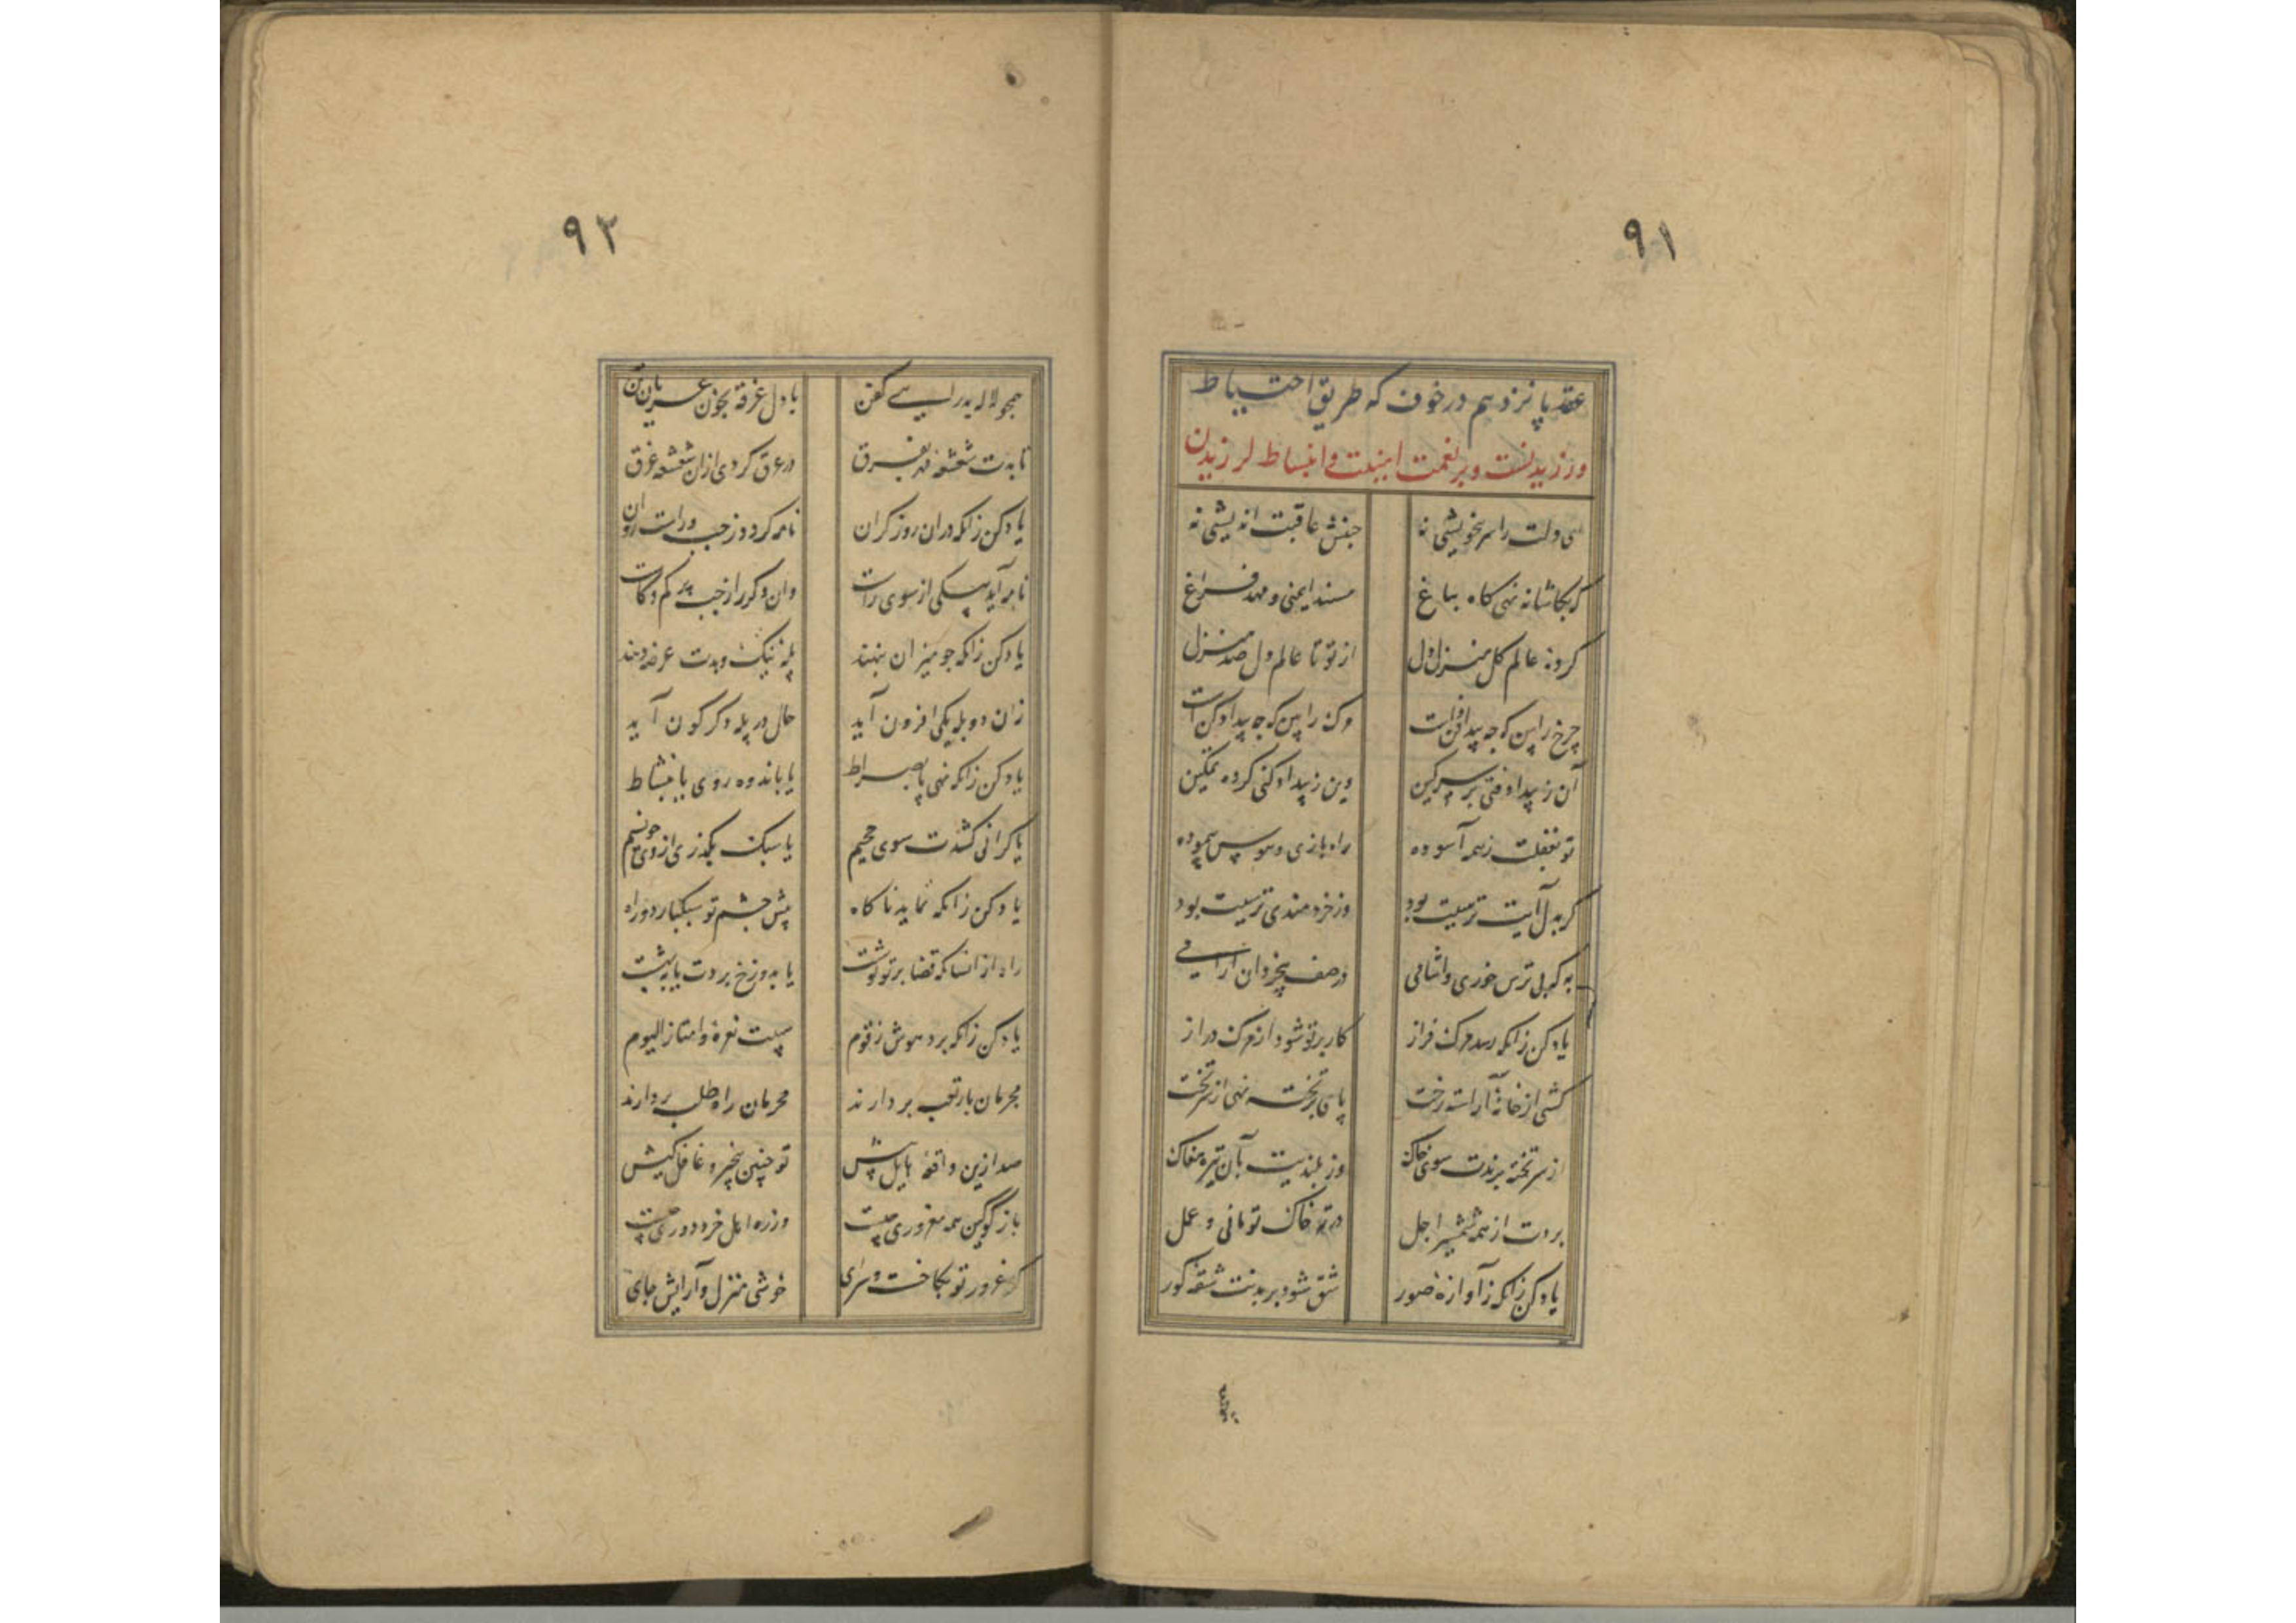 ۹۱
عقد پانزدهم در خوف که طریق احتیاط
ورزیدنست و بر نعمت امنیت و انبساط لرزیدن
ای دلت را سر خویشی نه جنبش عاقبت اندیشی نه
کر بکاشانه نهی کاه بباغ مسند ایمنی و مهد فراغ
کرده عالم کل منزل دل از تو تا عالم دل صد منزل
چرخ را بین که چه پیدا فن است وکه را بین که چه پیداوکن است
آن ز پیدا وفتی بر سر کین وین ز پیدا وکنی کرده تمکین
تو بغفلت ز همه آسوده راه بازی و هوس پیموده
کر بدل آیت ترسیت بود وز خردمندی ترسیت بود
به که بی ترس خوری و آشامی در صف بیخردان آرامی
یاد کن زانکه رسد مرک فراز کار بر تو شود از مرک دراز
کشی از خانهٔ آراسته رخت پای بر تخته نهی از سر تخت
از سر تخته برندت سوی خاک وز بلندیت بآن تیره مغاک
بردت از همه شمشیر اجل در ته خاک تو مانی و عمل
یاد کن زانکه ز آوازهٔ صور شق شود بر بدنت شقهٔ کور
۹۲
همچو لاله بدر آیی بی کفن با دل غرقه بخون عریان تن
تابدت شعشعهٔ مهر بفرق در عرق کردی ازان شعشعه غرق
یاد کن زانکه دران روز کران نامه کردد ز چپ و راست روان
نامه آید یکی از سوی راست وان دکر را ز چپ کم وکاست
یاد کن زانکه چو میزان بنهند پلهٔ نیک و بدت عرضه دهند
زان دو پله یکی افزون آید حال در پله دکرکون آید
یاد کن زانکه نهی پا بصراط یا باندوه روی یا بنشاط
یا کرانی کشدت سوی جحیم یا سبک بکذری از وی چو نسیم
یاد کن زانکه نماید ناکاه پیش چشم تو سبکبار دو راه
راه ازانسا که قضا بر تو نوشت یا بدوزخ بردت یا ببهشت
یاد کن زانکه برد هوش ز قوم هیبت نعرهٔ وامتازالیوم
مجرمان بار تعب بردارند محرمان راه طلب بردارند
صد ازین واقعهٔ هایل پیش تو چنین بیخبر و غافل کیش
باز کو کین همه مغروری چیست وز ره اهل خرد دوری چیست
کر غرور تو بکاخست و سرای خوشی منزل و آرایش جای